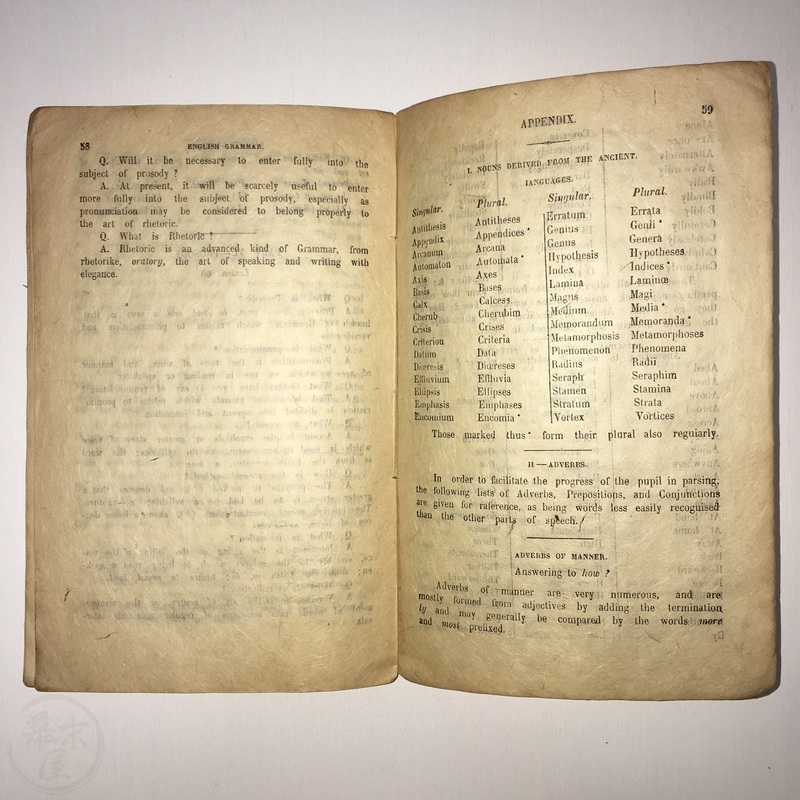 58
ENGLISH GRAMMAR.
Q. Will it be necessary to enter fully into the
subject of prosody ?
A. At present, it will be scarcely useful to enter
more fully into the subject of prosody, especially as
pronunciation may be considered to belong properly to
the art of rhetoric.
Q. What is Rhetoric ?
A. Rhetoric is an advanced kind of Grammar, from
rhetorike, oratory, the art of speaking and writing with
elegance.
59
APPENDIX.
I. NOUNS DERIVED FROM THE ANCIENT.
LANGUAGES.
Singular. Plural. Singular. Plural.
Antithesis Antitheses Erratum Errata
Appendix Appendices * Genius Genii *
Arcanum Arcana Genus Genera
Automaton Automata * Hypothesis Hypotheses
Axis Axes Index Indices *
Basis Bases Lamina Laminœ
Calx Calcess Magus Magi
Cherub Cherubim Medium Media *
Crisis Crises Memorandum Memoranda *
Criterion Criteria Metamorphosis Metamorphoses
Datum Data Phenomenon Phenomena
Diœresis Diœreses Radius Radii
Effluvium Effluvia Seraph Seraphim
Ellipsis Ellipses Stamen Stamina
Emphasis Emphases Stratum Strata
Encomium Encomia * Vortex Vortices
Those marked thus * form their plural also reguiarly.
II — ADVERBS.
In order to facilitate the progress of the pupil in parsing,
the following lists of Adverbs, Prepositions, and Conjunctions
are given for raference, as being words less easily recognised
than the other parts of speech.
ADVERBS OF MANNER.
Answering to how ?
Adverbs of manner are very numerous, and are
mostly formed from adjectives by adding the termination
ly and may generally be compared by the words more
and most prefixed.
幕末屋